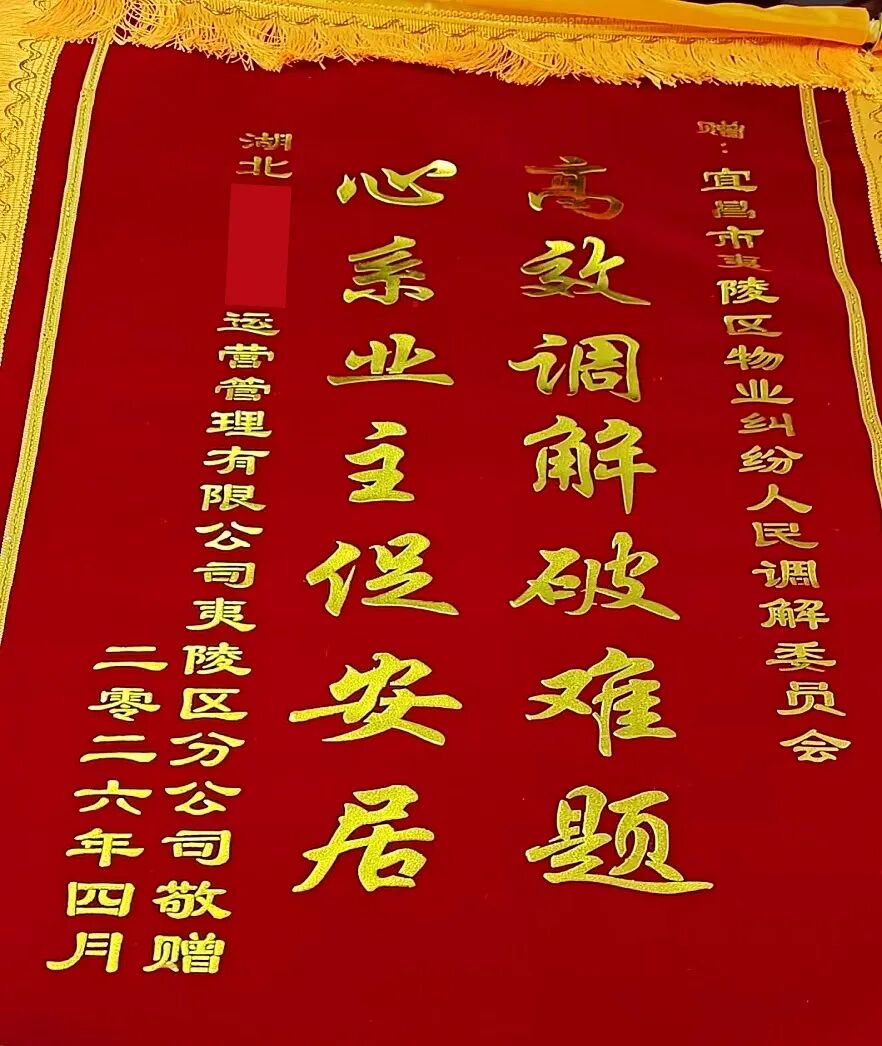 赠：宜昌市夷陵区物业纠纷人民调解委员会
高效调解破难题
心系业主促安居
湖北
运营管理有限公司夷陵区分公司敬赠
二零二六年四月